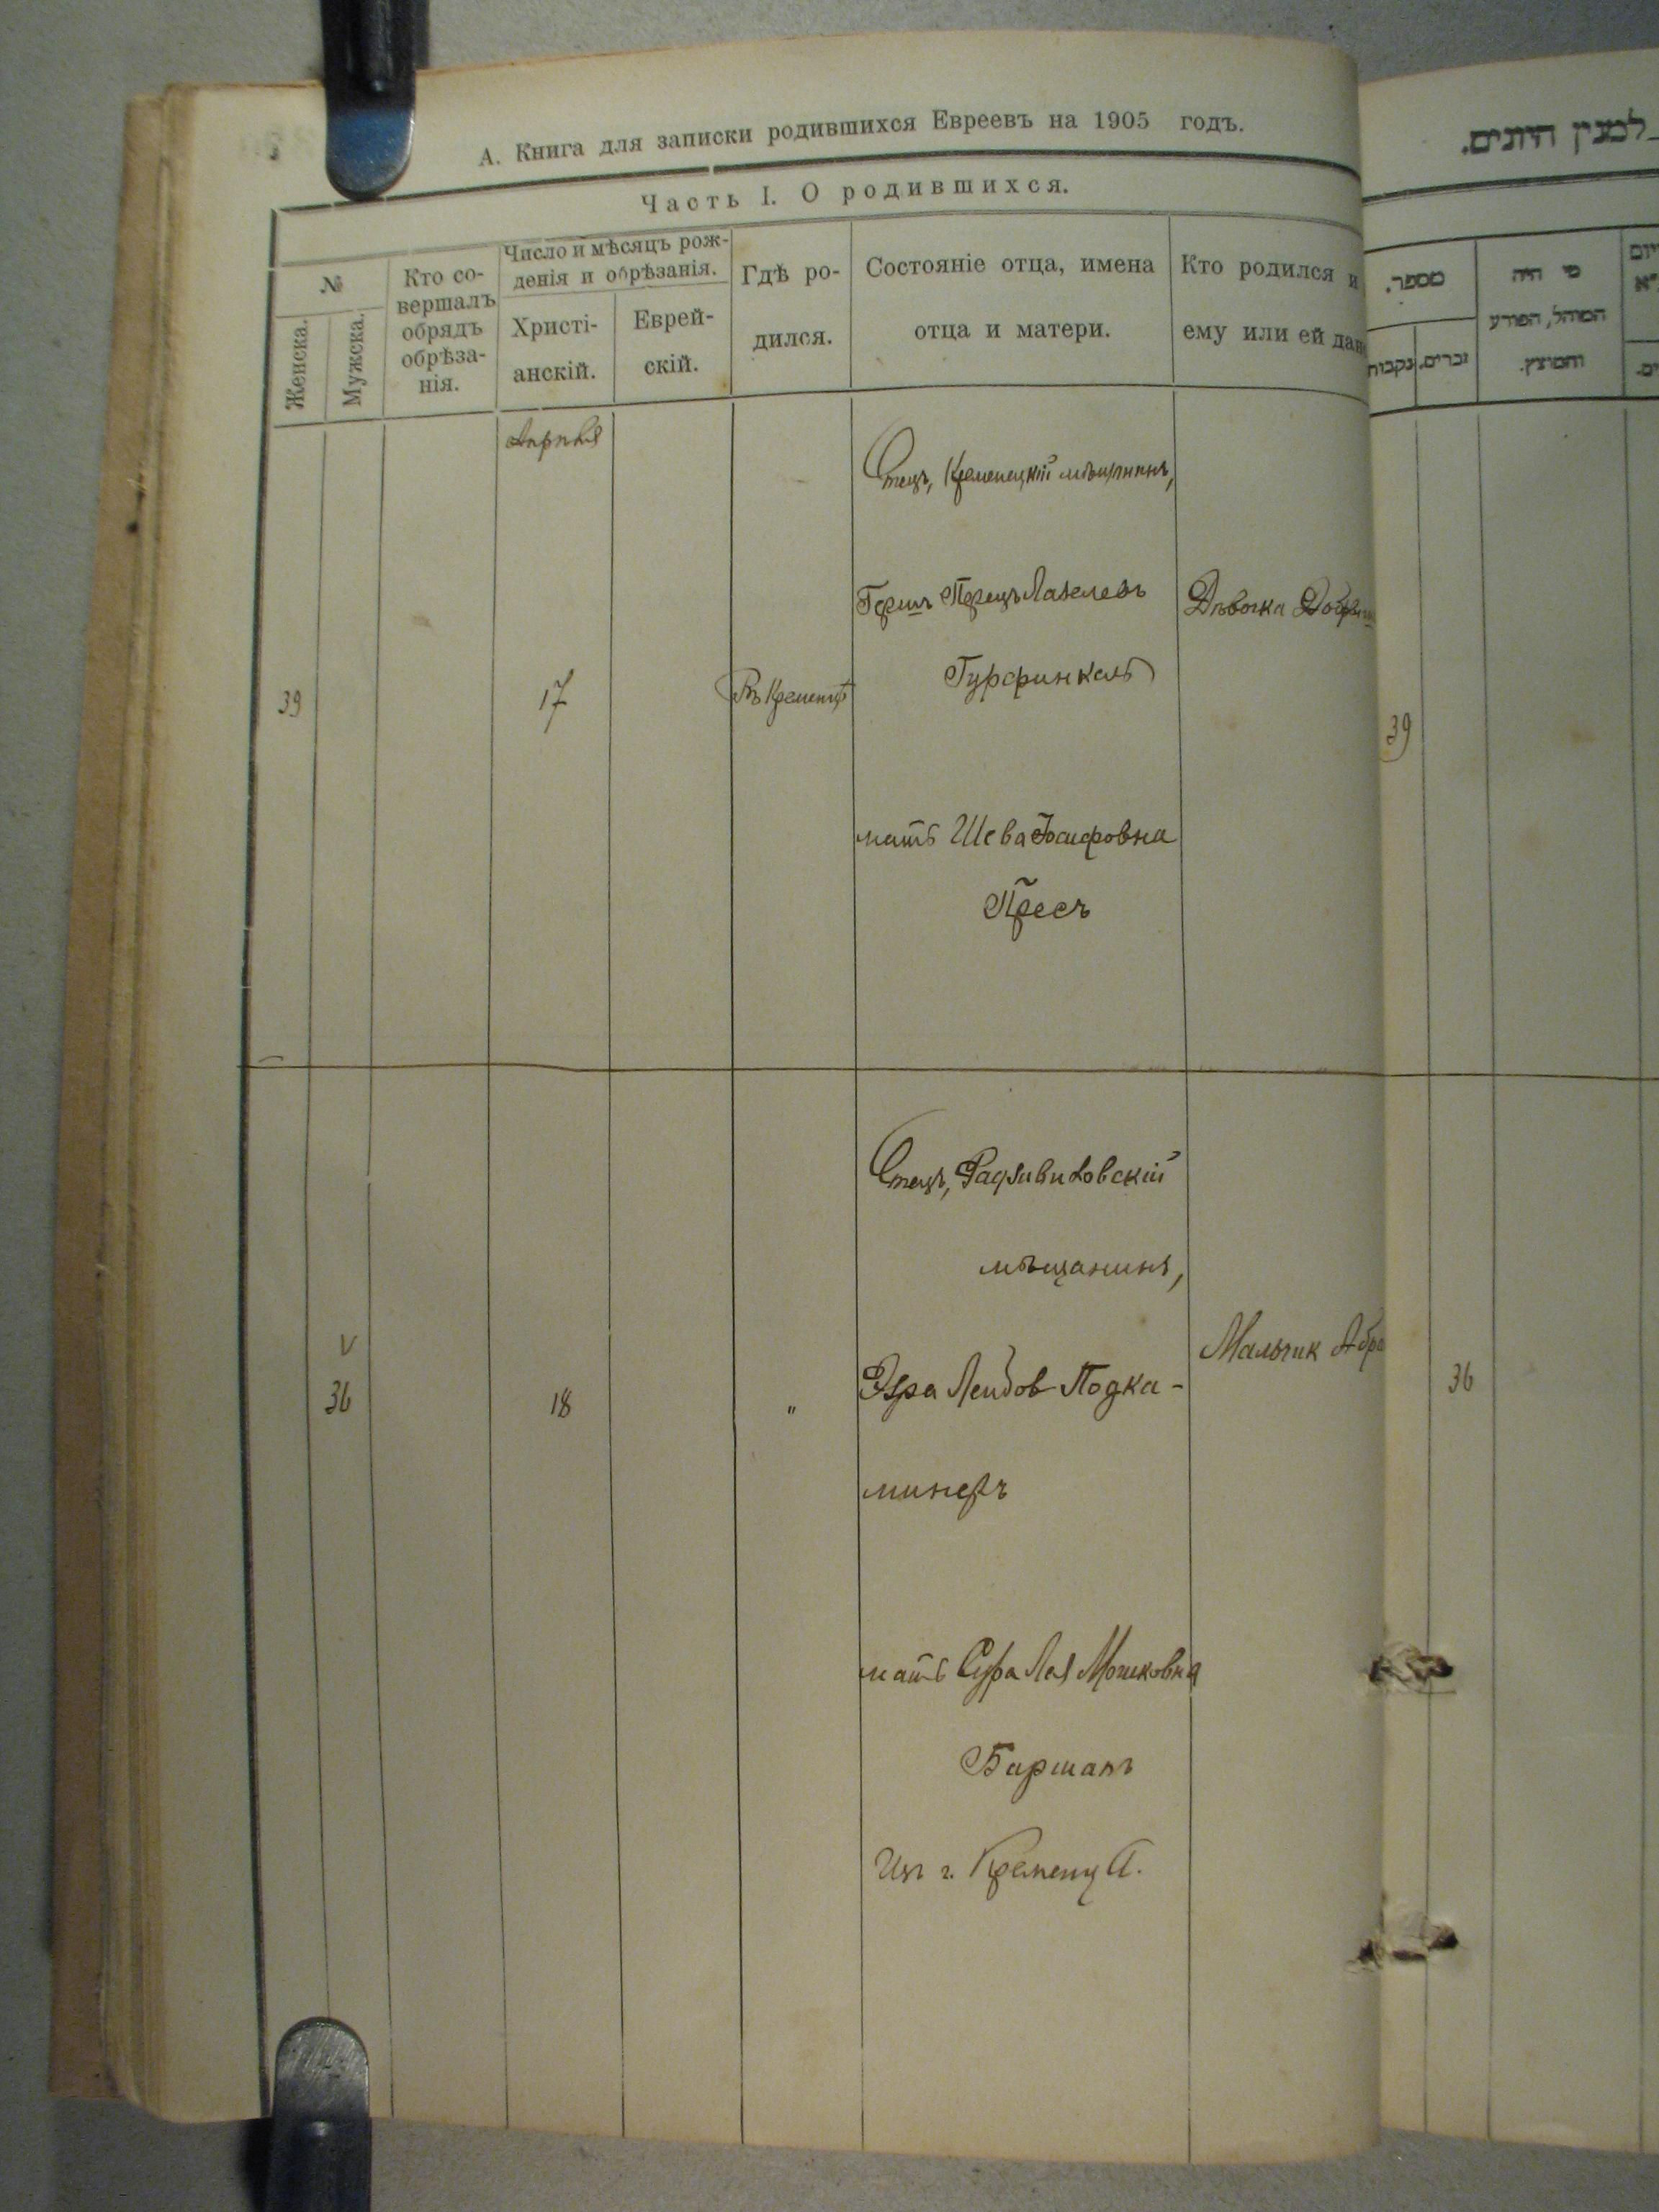 А. Книга для записки родившихся Евреевъ на 1905 годъ.
Часть I. О родившихся.
№
Женска.
Мужска.
Кто со-
вершалъ
обрядъ
обрѣза-
нія.
Число и мѣсяцъ рож-
денія и обрѣзанія.
Христі-
анскій.
Еврей-
скій.
Гдѣ ро-
дился.
Состояніе отца, имена
отца и матери.
Кто родился и
ему или ей дан
Апрѣля
39
17
Въ Кременцѣ
Отецъ, Кременецкій мѣщанинъ,
Герш Перецъ Лазелевъ
Гурфинкель
мать Шева Іосифовна
Пресъ
Дѣвочка
V
36
18
"
Отецъ, Радзивиловскій
мѣщанинъ,
Эзра Лейбов Подка-
минеръ
мать Сура Лея Мошковна
Баршапъ
Изъ г. Кременца.
Мальчик Абра
למנין היונים.
מספר.
נקבות
זכרים.
מי היה
המוהל, הפורע
והמוצץ.
39
36